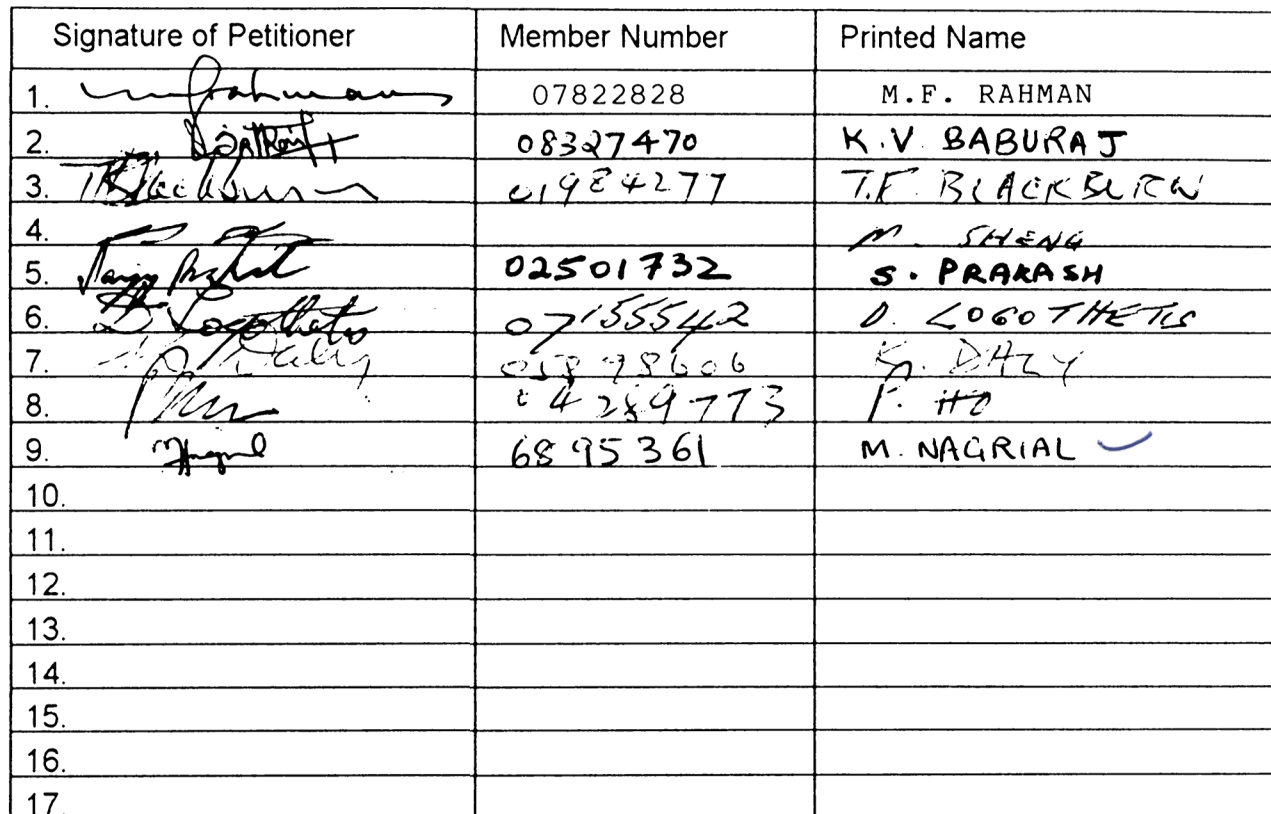 Signature of Petitioner Member Number Printed Name
1. 07822828 M.F. RAHMAN
2. 08327470 K.V. BABURAJ
3. TBlackburn 01984277 T.F. BLACKBURN
4. M. SHENG
5. 02501732 S. PRAKASH
6. D Logothetis 07155542 D. LOGOTHETIS
7. Daly 05898606 K. DALY
8. 04289773 P. HO
9. 6895361 M. NAGRIAL
10.
11.
12.
13.
14.
15.
16.
17.